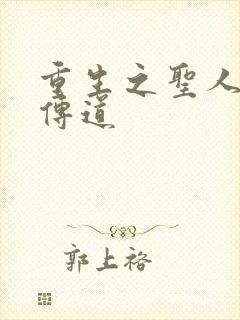 重生之聖人
傳道
郭上裕